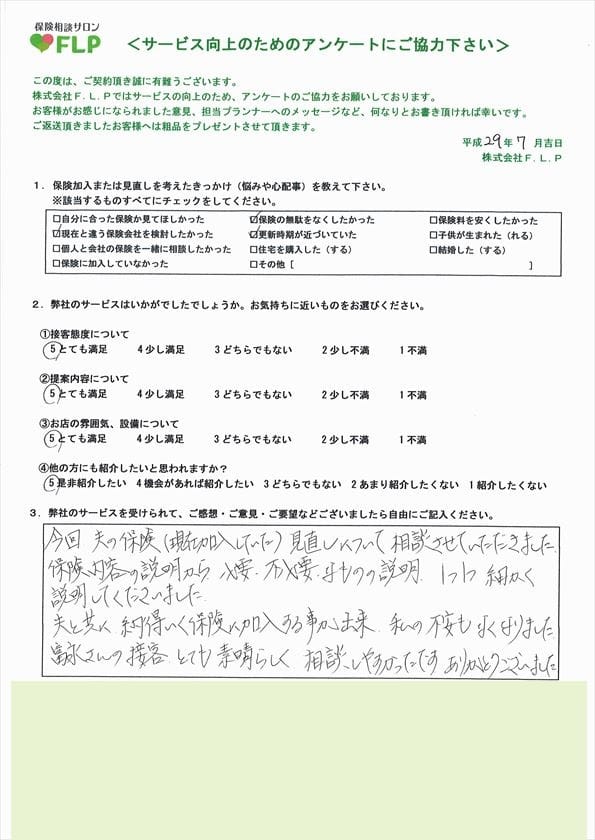 保険相談サロン
FLP
＜サービス向上のためのアンケートにご協力下さい＞
この度は、ご契約頂き誠に有難うございます。
株式会社Ｆ.Ｌ.Ｐではサービスの向上のため、アンケートのご協力をお願いしております。
お客様がお感じになられました意見、担当プランナーへのメッセージなど、何なりとお書き頂ければ幸いです。
ご返送頂きましたお客様へは粗品をプレゼントさせて頂きます。
平成29年7月吉日
株式会社Ｆ.Ｌ.Ｐ
１．保険加入または見直しを考えたきっかけ（悩みや心配事）を教えて下さい。
※該当するものすべてにチェックをしてください。
□自分に合った保険か見てほしかった ☑保険の無駄をなくしたかった □保険料を安くしたかった
☑現在と違う保険会社を検討したかった ☑更新時期が近づいていた □子供が生まれた（れる）
□個人と会社の保険を一緒に相談したかった □住宅を購入した（する） □結婚した（する）
□保険に加入していなかった □その他［ ］
２．弊社のサービスはいかがでしたでしょうか。お気持ちに近いものをお選びください。
①接客態度について
５とても満足 ４少し満足 ３どちらでもない ２少し不満 １不満
②提案内容について
５とても満足 ４少し満足 ３どちらでもない ２少し不満 １不満
③お店の雰囲気、設備について
５とても満足 ４少し満足 ３どちらでもない ２少し不満 １不満
④他の方にも紹介したいと思われますか？
５是非紹介したい ４機会があれば紹介したい ３どちらでもない ２あまり紹介したくない １紹介したくない
３．弊社のサービスを受けられて、ご感想・ご意見・ご要望などございましたら自由にご記入ください。
今回 夫の保険（現在加入していた）見直しについて 相談させていただきました.
保険内容の説明から 必要・不必要なものの説明. 1つ1つ 細かく
説明してくださいました.
夫と共に 納得いく保険に加入する事が出来. 私の不安もなくなりました.
富永さんの接客 とても素晴らしく 相談しやすかったです ありがとうございました